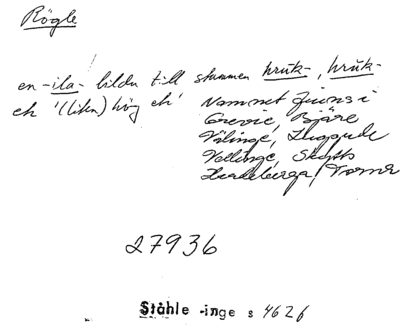 Rögle
en -ila- bildn till stammen hrūk-, hrŭk-
ek '(liten) hög ek'
Namnet finns i
Grevie, Bjäre
Vilinge, Luggude
Vellinge, Skytts
Hardeberga, Torna
27936
Ståhle -inge s 462 f